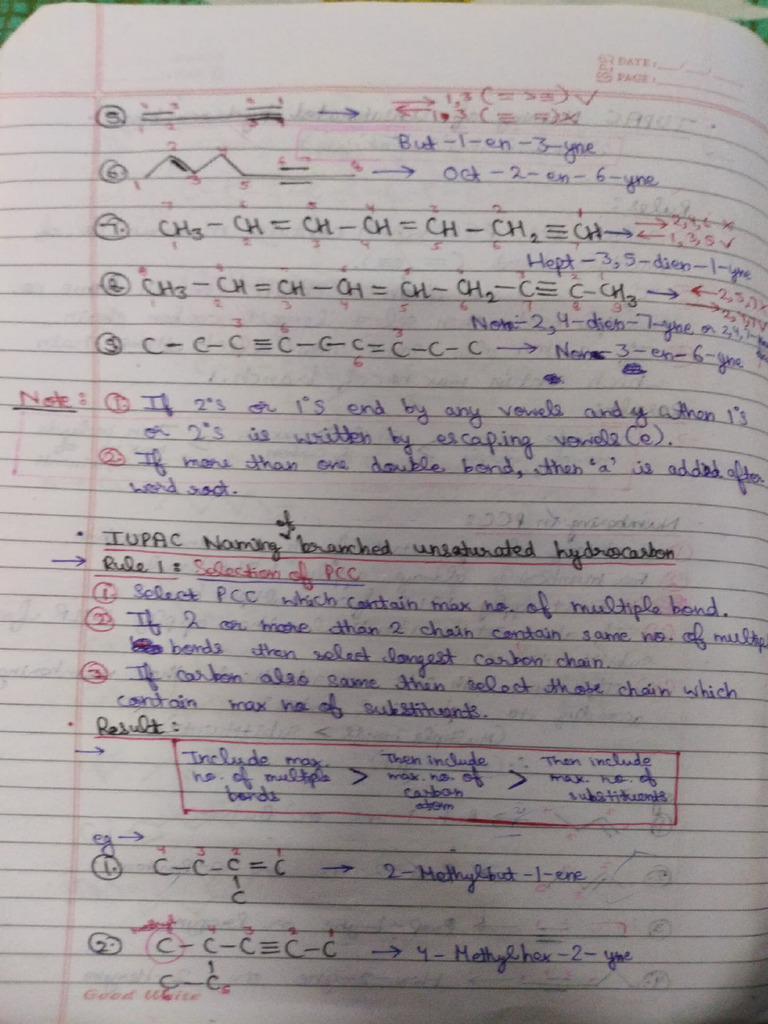 DATE: __/__/__
PAGE: ____
⑤ → 1,3 (= >≡) ✓
1,3 (≡ =) ×
But-1-en-3-yne
⑥ 1 2 3 4 5 6 7 8 → Oct-2-en-6-yne
⑦ CH3 - CH = CH - CH = CH - CH2 ≡ CH → 2,4,6 ×
1 2 3 4 5 6 1,3,5 ✓
Hept-3,5-dien-1-yne
② CH3 - CH = CH - CH = CH - CH2 - C ≡ C - CH3 → 2,5,7 ×
Non-2,4-dien-7-yne or
③ C - C - C ≡ C - C - C = C - C - C → Non-3-en-6-yne
Note: ① If 2°s or 1°s end by any vowels and y then 1°s
or 2°s is written by escaping vowels (e).
② If more than one double bond, then 'a' is added after
word root.
• IUPAC Naming of branched unsaturated hydrocarbon
→ Rule 1: Selection of PCC
① Select PCC which contain max no. of multiple bond.
② If 2 or more than 2 chain contain same no. of multiple
bonds then select longest carbon chain.
③ If carbon also same then select those chain which
contain max no of substituents.
• Result:
→ Include max. Then include Then include
no. of multiple > max. no. of > max. no. of
bonds carbon substituents
atom
eg →
4 3 2 1
① C-C-C=C → 2-Methylbut-1-ene
C
4 3 2 1
② C-C-C≡C-C → 4-Methylhex-2-yne
C-C5
Good Write